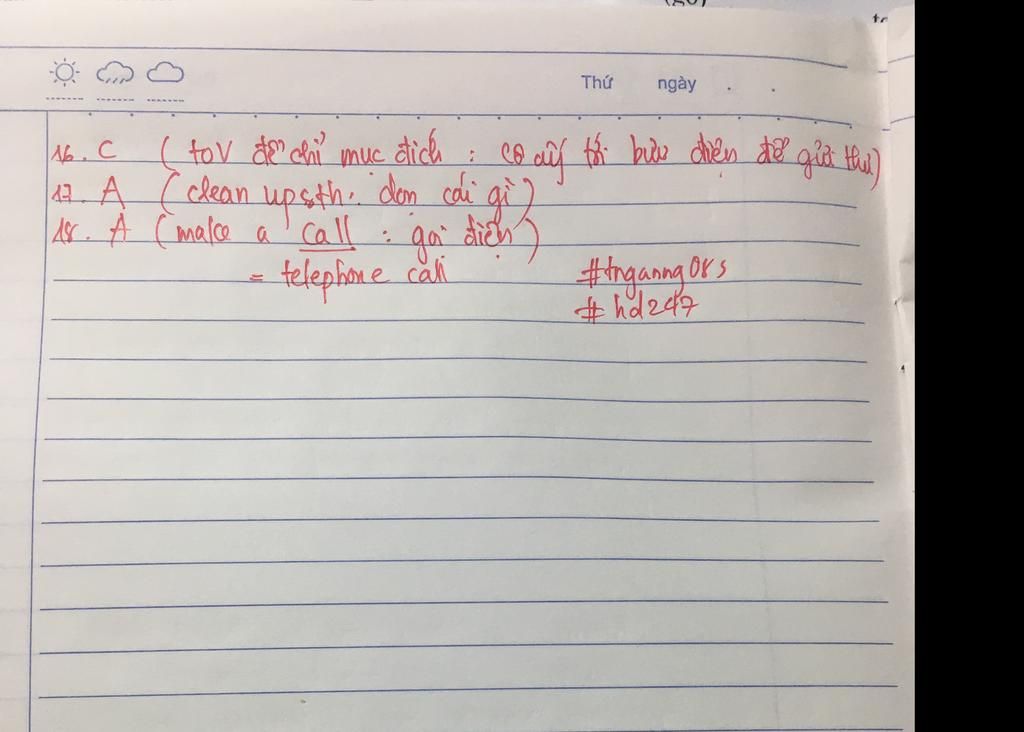 Thứ ngày . .
16. C (to V để chỉ mục đích : cô ấy tới bưu điện để gửi thư)
17. A (clean up sth : dọn cái gì)
18. A (make a call : gọi điện)
= telephone call
#tnganng08s
#hd247